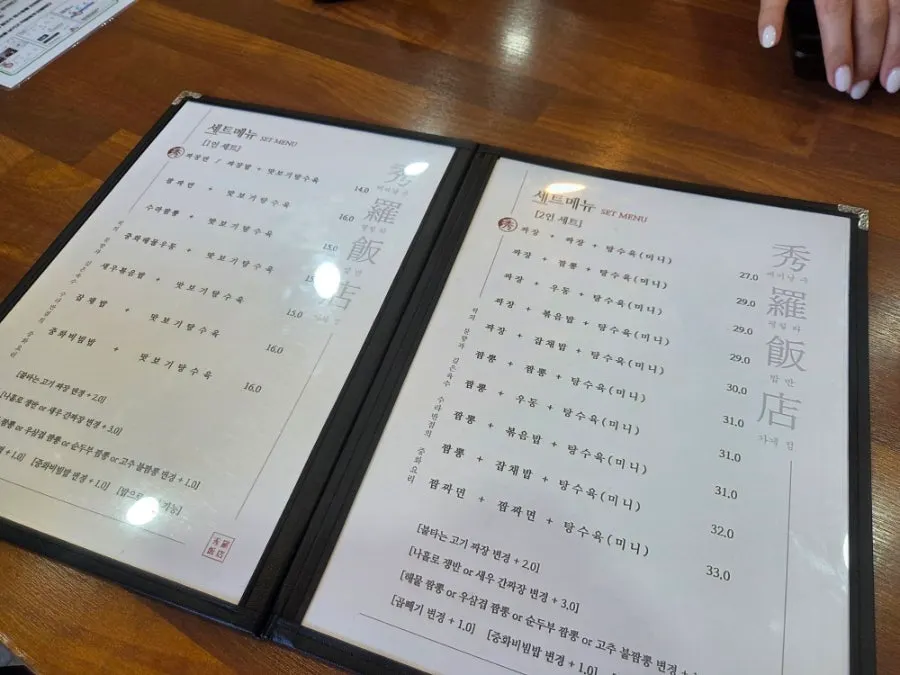 세트메뉴 SET MENU
[1인 세트]
秀 짜장면 / 짜장밥 + 맛보기탕수육 14.0
짬짜면 + 맛보기탕수육 16.0
수라짬뽕 + 맛보기탕수육 15.0
중화해물우동 + 맛보기탕수육
새우볶음밥 + 맛보기탕수육 15.0
잡채밥 + 맛보기탕수육 16.0
중화비빔밥 + 맛보기탕수육 16.0
[불타는 고기 짜장 변경 + 2.0]
[나홀로 쟁반 or 새우 간짜장 변경 + 3.0]
짬뽕 or 우삼겹 짬뽕 or 순두부 짬뽕 or 고추 불짬뽕 변경 + 1.0]
+ 1.0] [중화비빔밥 변경 + 1.0] 가능]
秀羅飯店
秀羅飯店
세트메뉴 SET MENU
[2인 세트]
秀 짜장 + 짜장 + 탕수육(미니) 27.0
짜장 + 짬뽕 + 탕수육(미니) 29.0
짜장 + 우동 + 탕수육(미니) 29.0
짜장 + 볶음밥 + 탕수육(미니) 29.0
짜장 + 잡채밥 + 탕수육(미니) 30.0
짬뽕 + 짬뽕 + 탕수육(미니) 31.0
짬뽕 + 우동 + 탕수육(미니) 31.0
짬뽕 + 볶음밥 + 탕수육(미니) 31.0
짬뽕 + 잡채밥 + 탕수육(미니) 32.0
짬짜면 + 짬짜면 + 탕수육(미니) 33.0
깊은육수 수라반점의 중화요리
[불타는 고기 짜장 변경 + 2.0]
[나홀로 쟁반 or 새우 간짜장 변경 + 3.0]
[해물 짬뽕 or 우삼겹 짬뽕 or 순두부 짬뽕 or 고추 불짬뽕 변경 +
[곱빼기 변경 + 1.0] [중화비빔밥 변경 + 1.0]
秀 빼어날 수
羅 벌일 라
飯 밥 반
店 가게 점